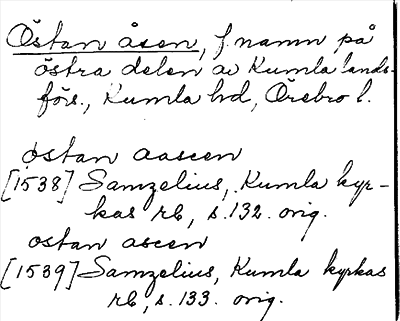 Östan åsen, f. namn på
östra delen av Kumla lands-
förs., Kumla hd, Örebro l.
østan aascen
[1538] Samzelius, Kumla kyr-
kas rb, s. 132. orig.
ostan ascen
[1539] Samzelius, Kumla kyrkas
rb, s. 133. orig.